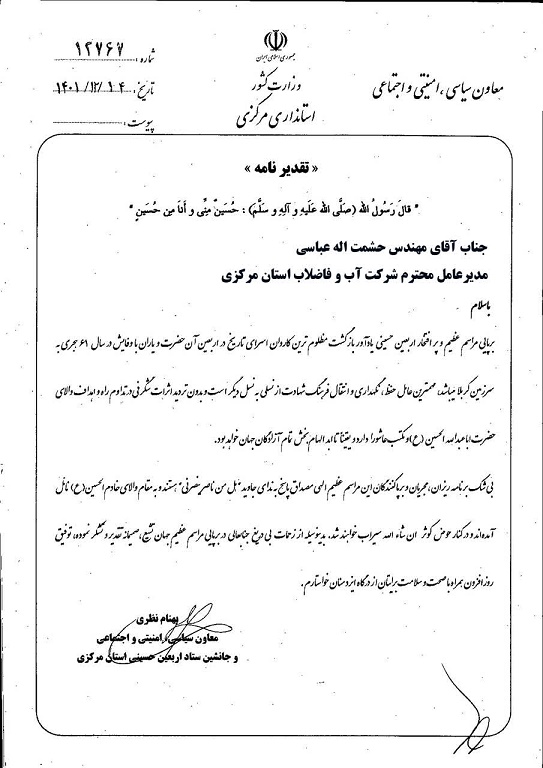 جمهوری اسلامی ایران
وزارت کشور
استانداری مرکزی
معاون سیاسی، امنیتی و اجتماعی
شماره: ۱۲۷۶۷
تاریخ: ۱۴۰۱/۱۲/۱۴
پیوست:
« تقدیر نامه »
" قالَ رَسُولُ الله (صَلَّی الله عَلَیهِ وَ آلِهِ وَ سَلَّمَ) : حُسَینٌ مِنِّی وَ أنَا مِن حُسَینٍ "
جناب آقای مهندس حشمت اله عباسی
مدیرعامل محترم شرکت آب و فاضلاب استان مرکزی
باسلام
برپایی مراسم عظیم و پر افتخار اربعین حسینی یادآور بازگشت مظلوم ترین کاروان اسرای تاریخ در اربعین آن حضرت و یاران باوفایش در سال ۶۱ هجری به
سرزمین کربلا میباشد، مهمترین عامل حفظ، نگهداری و انتقال فرهنگ شهادت از نسلی به نسل دیگر است و بدون تردید اثرات شگرفی در تداوم راه و اهداف والای
حضرت اباعبدالله الحسین (ع) و مکتب عاشورا دارد و یقیناً تا ابد الهام بخش تمام آزادگان جهان خواهد بود.
بی شک برنامه ریزان، مجریان و برپاکنندگان این مراسم عظیم الهی مصداق پاسخ به ندای جاوید "هل من ناصر ینصرنی" هستند و به مقام والای خادم الحسین (ع) نائل
آمده‌اند و در کنار حوض کوثر ان شاء الله سیراب خواهند شد. بدینوسیله از زحمات بی دریغ جنابعالی در برپایی مراسم عظیم جهان تشیع، صمیمانه تقدیر و تشکر نموده، توفیق
روزافزون همراه با صحت و سلامت برایتان از درگاه ایزد منان خواستارم.
بهنام نظری
معاون سیاسی، امنیتی و اجتماعی
و جانشین ستاد اربعین حسینی استان مرکزی